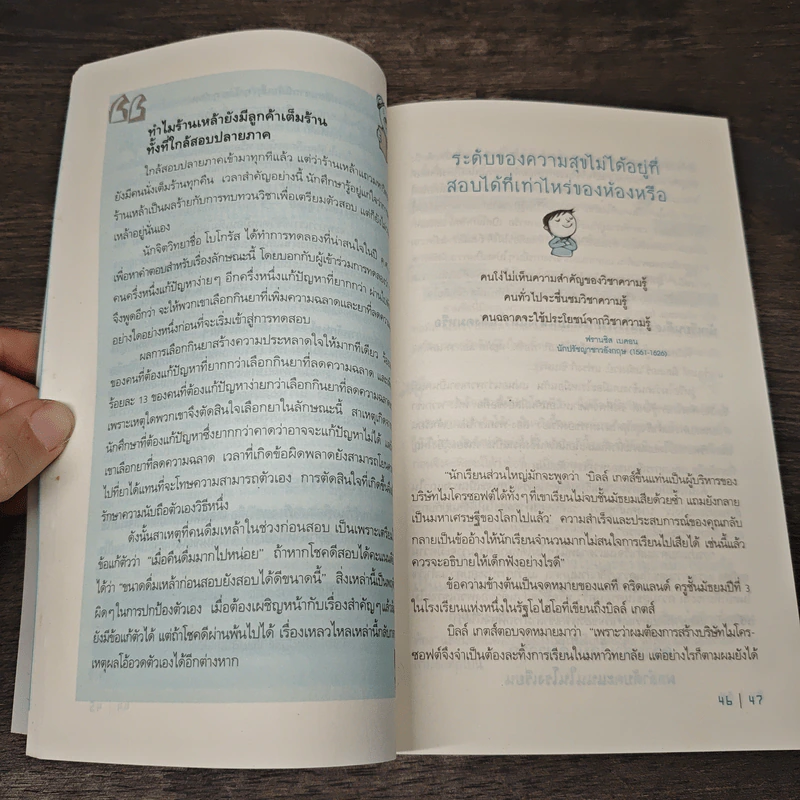 ทำไมร้านเหล้ายังมีลูกค้าเต็มร้าน
ทั้งที่ใกล้สอบปลายภาค
ใกล้สอบปลายภาคเข้ามาทุกทีแล้ว แต่ว่าร้านเหล้าแถวมหา
ยังมีคนนั่งเต็มร้านทุกคืน เวลาสำคัญอย่างนี้ นักศึกษารู้อยู่แก่ใจว่า
ร้านเหล้าเป็นผลร้ายกับการทบทวนวิชาเพื่อเตรียมตัวสอบ แต่ก็ยัง
เหล้าอยู่นั่นเอง
นักจิตวิทยาชื่อ โบโกรัส ได้ทำการทดลองที่น่าสนใจในปี ค.ศ.
เพื่อหาคำตอบสำหรับเรื่องลักษณะนี้ โดยบอกกับผู้เข้าร่วมการทดลอง
คนครึ่งหนึ่งแก้ปัญหาง่ายๆ อีกครึ่งหนึ่งแก้ปัญหาที่ยากกว่า
จึงพูดอีกว่า จะให้พวกเขาเลือกกินยาที่เพิ่มความฉลาดและยาที่ลด
อย่างใดอย่างหนึ่งก่อนที่จะเริ่มเข้าสู่การทดสอบ
ผลการเลือกกินยาสร้างความประหลาดใจให้มากทีเดียว
ของคนที่ต้องแก้ปัญหาที่ยากกว่าเลือกกินยาที่ลดความฉลาด และ
ร้อยละ 13 ของคนที่ต้องแก้ปัญหาง่ายกว่าเลือกกินยาที่ลดความฉลาด
เพราะเหตุใดพวกเขาจึงตัดสินใจเลือกยาในลักษณะนี้ สาเหตุเกิดจาก
นักศึกษาที่ต้องแก้ปัญหาซึ่งยากกว่าคาดว่าอาจจะแก้ปัญหาไม่ได้
เขาเลือกยาที่ลดความฉลาด เวลาที่เกิดข้อผิดพลาดยังสามารถโยน
ไปที่ยาได้แทนที่จะโทษความสามารถตัวเอง การตัดสินใจที่เกิดขึ้น
รักษาความนับถือตัวเองวิธีหนึ่ง
ดังนั้นสาเหตุที่คนดื่มเหล้าในช่วงก่อนสอบ เป็นเพราะเตรียม
ข้อแก้ตัวว่า “เมื่อคืนดื่มมากไปหน่อย” ถ้าหากโชคดีสอบได้คะแนน
ได้ว่า “ขนาดดื่มเหล้าก่อนสอบยังสอบได้ดีขนาดนี้” สิ่งเหล่านี้เป็น
ผิดๆ ในการปกป้องตัวเอง เมื่อต้องเผชิญหน้ากับเรื่องสำคัญๆ แล้ว
ยังมีข้อแก้ตัวได้ แต่ถ้าโชคดีผ่านพ้นไปได้ เรื่องเหลวไหลเหล่านี้กลับ
เหตุผลโอ้อวดตัวเองได้อีกต่างหาก
ระดับของความสุขไม่ได้อยู่ที่
สอบได้ที่เท่าไหร่ของห้องหรือ
คนโง่ไม่เห็นความสำคัญของวิชาความรู้
คนทั่วไปจะชื่นชมวิชาความรู้
คนฉลาดจะใช้ประโยชน์จากวิชาความรู้
ฟรานซิส เบคอน
นักปรัชญาชาวอังกฤษ (1561-1626)
“นักเรียนส่วนใหญ่มักจะพูดว่า ‘บิลล์ เกตส์ขึ้นแท่นเป็นผู้บริหารของ
บริษัทไมโครซอฟต์ได้ทั้งๆ ที่เขาเรียนไม่จบชั้นมัธยมเสียด้วยซ้ำ แถมยังกลาย
เป็นมหาเศรษฐีของโลกไปแล้ว’ ความสำเร็จและประสบการณ์ของคุณกลับ
กลายเป็นข้ออ้างให้นักเรียนจำนวนมากไม่สนใจการเรียนไปเสียได้ เช่นนี้แล้ว
ควรจะอธิบายให้เด็กฟังอย่างไรดี”
ข้อความข้างต้นเป็นจดหมายของแคที คริดแลนด์ ครูชั้นมัธยมปีที่ 3
ในโรงเรียนแห่งหนึ่งในรัฐโอไฮโอที่เขียนถึงบิลล์ เกตส์
บิลล์ เกตส์ตอบจดหมายมาว่า “เพราะว่าผมต้องการสร้างบริษัทไมโคร-
ซอฟต์จึงจำเป็นต้องละทิ้งการเรียนในมหาวิทยาลัย แต่อย่างไรก็ตามผมยังได้
46 | 47